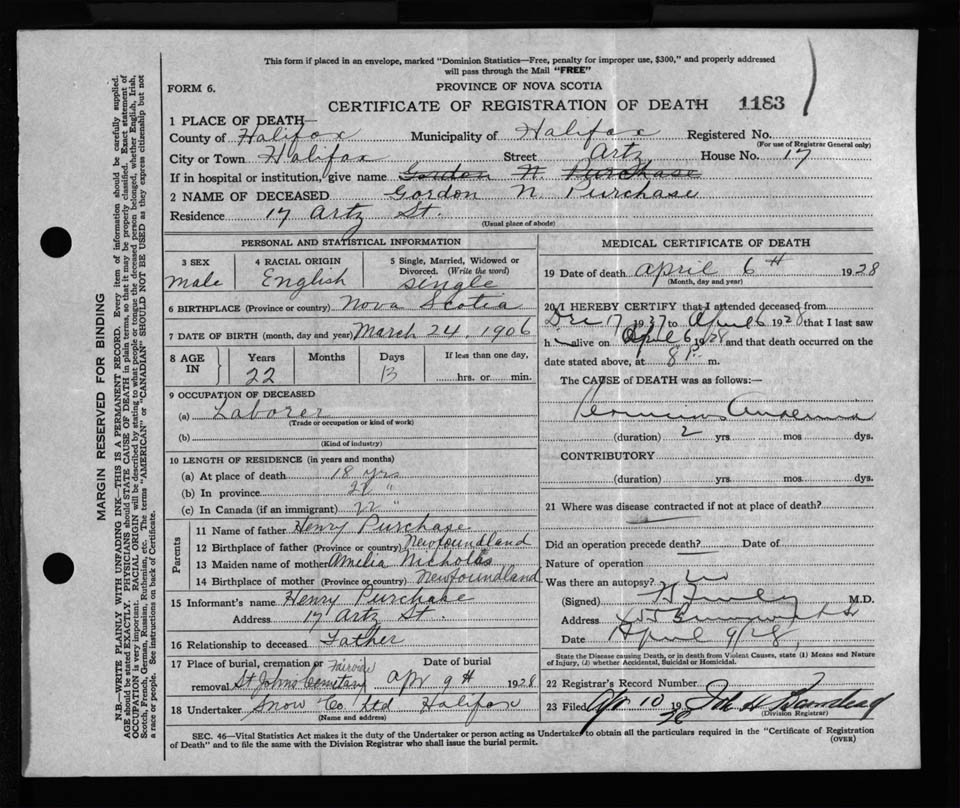 This form if placed in an envelope, marked "Dominion Statistics—Free, penalty for improper use, $300," and properly addressed
will pass through the Mail "FREE"
FORM 6.
PROVINCE OF NOVA SCOTIA
CERTIFICATE OF REGISTRATION OF DEATH 1183
1 PLACE OF DEATH—
County of Halifax Municipality of Halifax Registered No.
(For use of Registrar General only)
City or Town Halifax Street Artz House No. 17
If in hospital or institution, give name Gordon N. Purchase
2 NAME OF DECEASED Gordon N. Purchase
Residence 17 Artz St.
(Usual place of abode)
PERSONAL AND STATISTICAL INFORMATION
3 SEX
male
4 RACIAL ORIGIN
English
5 Single, Married, Widowed or
Divorced. (Write the word)
single
6 BIRTHPLACE (Province or country) Nova Scotia
7 DATE OF BIRTH (month, day and year) March 24, 1906
8 AGE IN
Years Months Days If less than one day,
22 13 hrs. or min.
9 OCCUPATION OF DECEASED
(a) Laborer
(Trade or occupation or kind of work)
(b)
(Kind of industry)
10 LENGTH OF RESIDENCE (in years and months)
(a) At place of death 18 yrs
(b) In province 22 "
(c) In Canada (if an immigrant) 22 "
Parents
11 Name of father Henry Purchase
12 Birthplace of father (Province or country) Newfoundland
13 Maiden name of mother Amelia Nicholas
14 Birthplace of mother (Province or country) Newfoundland
15 Informant's name Henry Purchase
Address 17 Artz St.
16 Relationship to deceased Father
17 Place of burial, cremation or Fairview Date of burial
removal St Johns Cemetary Apr 9th 1928
18 Undertaker Snow Co. Ltd Halifax
(Name and address)
MEDICAL CERTIFICATE OF DEATH
19 Date of death April 6th 1928
(Month, day and year)
20 I HEREBY CERTIFY that I attended deceased from
Dec 7 1927 to April 6 1928 that I last saw
h alive on April 6 1928 and that death occurred on the
date stated above, at 8 P. m.
The CAUSE of DEATH was as follows:—
Pernicious Anaemia
(duration) 2 yrs. mos. dys.
CONTRIBUTORY
(duration) yrs. mos. dys.
21 Where was disease contracted if not at place of death?
Did an operation precede death? Date of
Nature of operation
Was there an autopsy? no
(Signed) M.D.
Address
Date April 9/28
State the Disease causing Death, or in death from Violent Causes, state (1) Means and Nature
of Injury, (2) whether Accidental, Suicidal or Homicidal.
22 Registrar's Record Number
23 Filed Apr 10 1928
(Division Registrar)
SEC. 46—Vital Statistics Act makes it the duty of the Undertaker or person acting as Undertaker to obtain all the particulars required in the "Certificate of Registration
of Death" and to file the same with the Division Registrar who shall issue the burial permit.
(OVER)
MARGIN RESERVED FOR BINDING
N.B.—WRITE PLAINLY WITH UNFADING INK—THIS IS A PERMANENT RECORD. Every item of information should be carefully supplied.
AGE should be stated EXACTLY. PHYSICIANS should STATE CAUSE OF DEATH in plain terms, so that it may be properly classified. Exact statement of
OCCUPATION is very important. RACIAL ORIGIN will be described by stating to what people or tongue the deceased person belonged, whether English, Irish,
Scotch, French, German, Russian, Ruthenian, etc. The terms "AMERICAN" or "CANADIAN" SHOULD NOT BE USED as they express citizenship but not
a race or people. See instructions on back of Certificate.